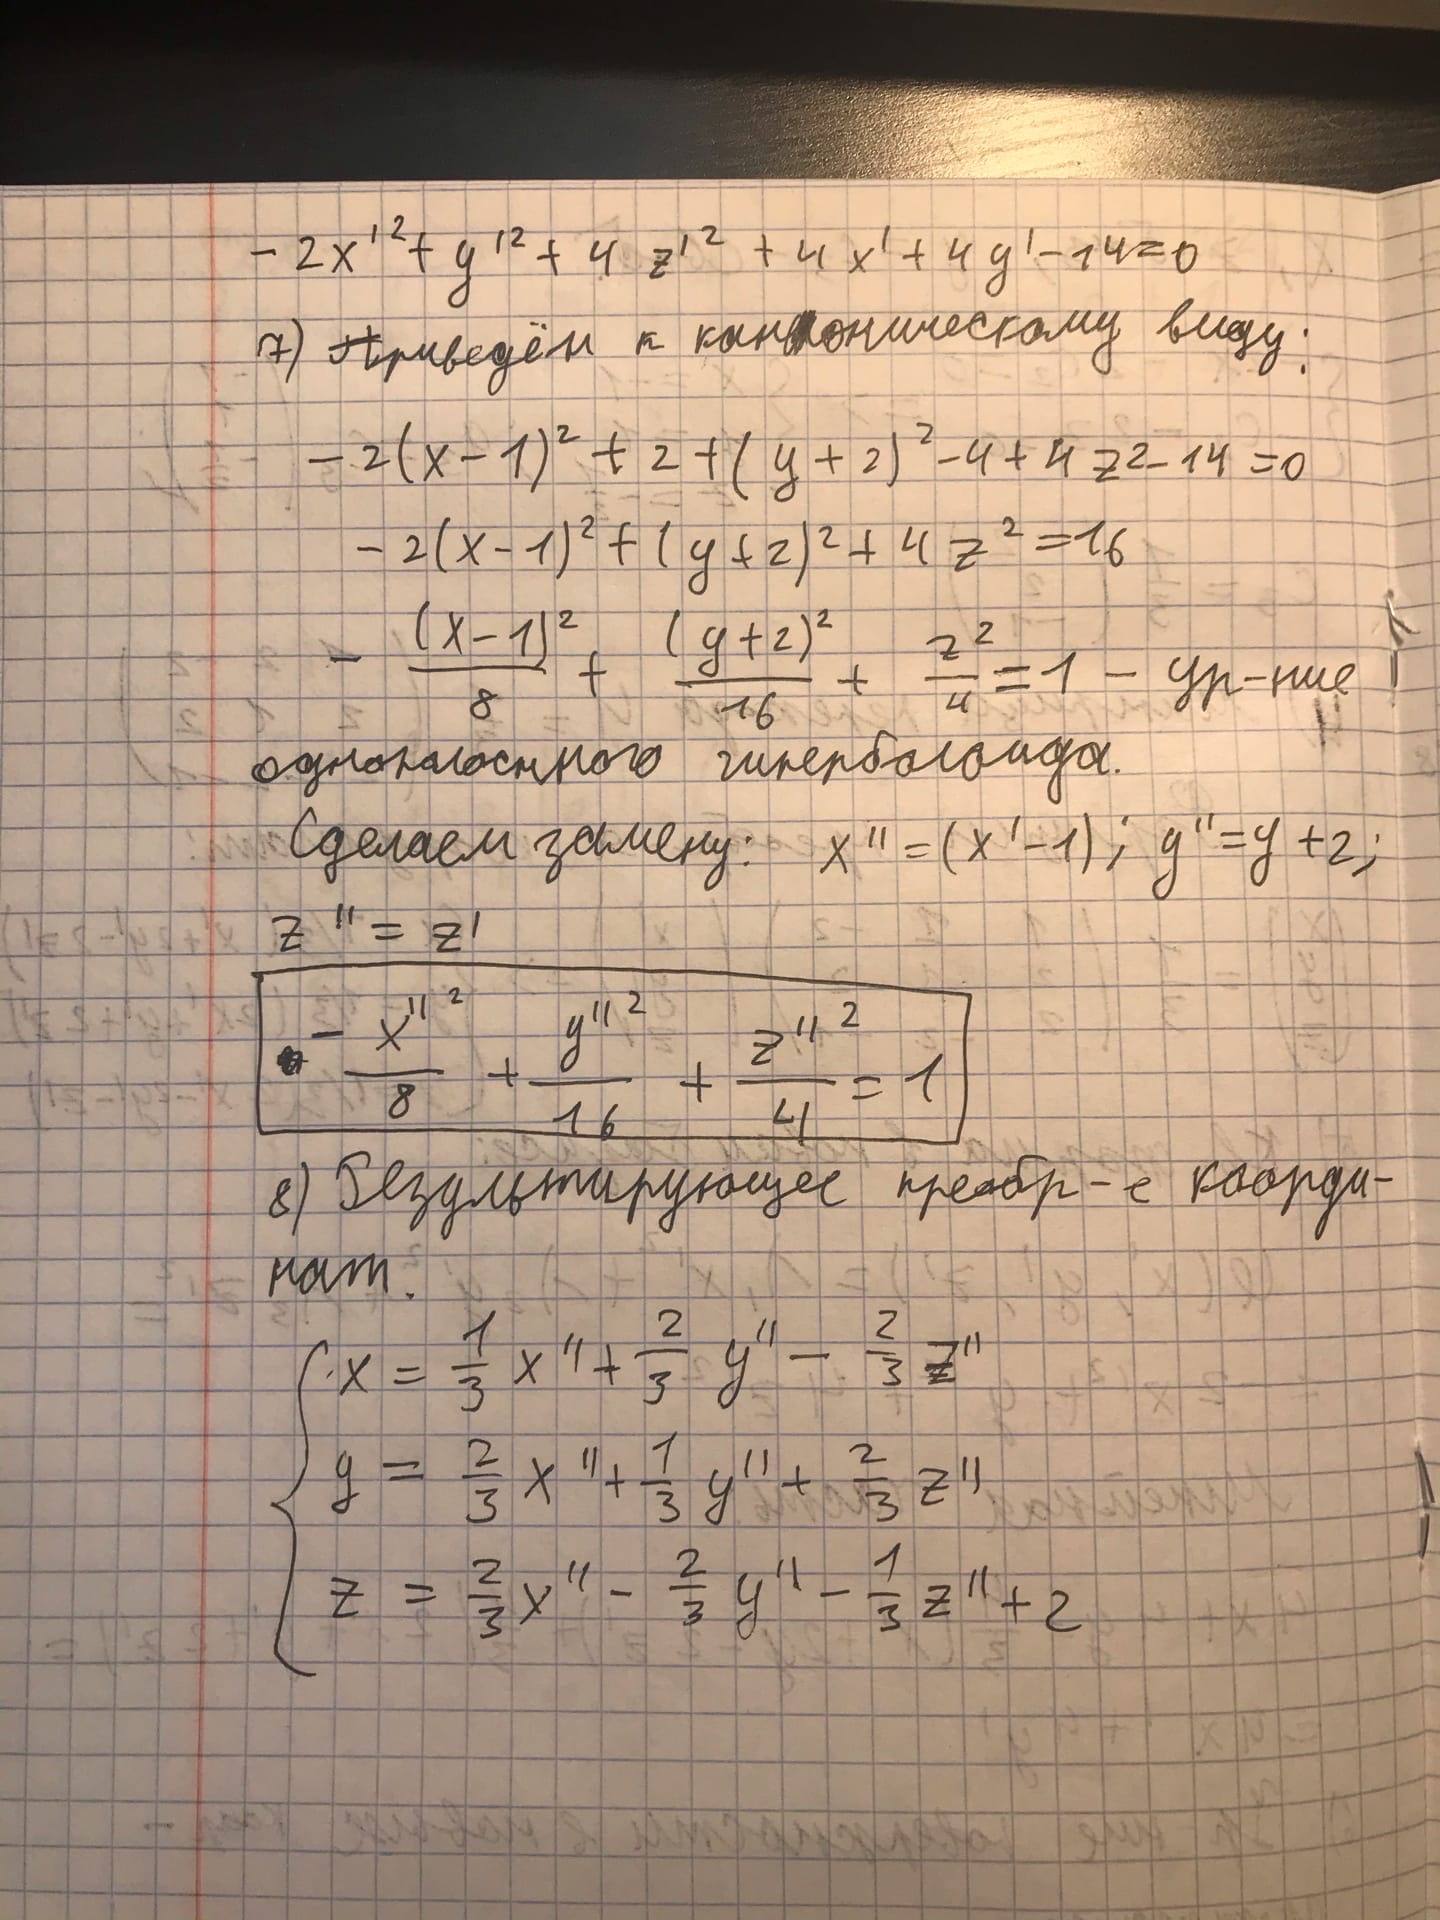 -2x'² + y'² + 4z'² + 4x' + 4y' - 14 = 0
7) Приведём к каноническому виду:
-2(x-1)² + 2 + (y+2)² - 4 + 4z² - 14 = 0
-2(x-1)² + (y+2)² + 4z² = 16
- (x-1)²/8 + (y+2)²/16 + z²/4 = 1 - ур-ние
однополостного гиперболоида.
Сделаем замену: x'' = (x'-1); y'' = y+2;
z'' = z'
- x''²/8 + y''²/16 + z''²/4 = 1
8) Результирующее преобр-е коорди-
нат.
x = 1/3 x'' + 2/3 y'' - 2/3 z''
y = 2/3 x'' + 1/3 y'' + 2/3 z''
z = 2/3 x'' - 2/3 y'' - 1/3 z'' + 2